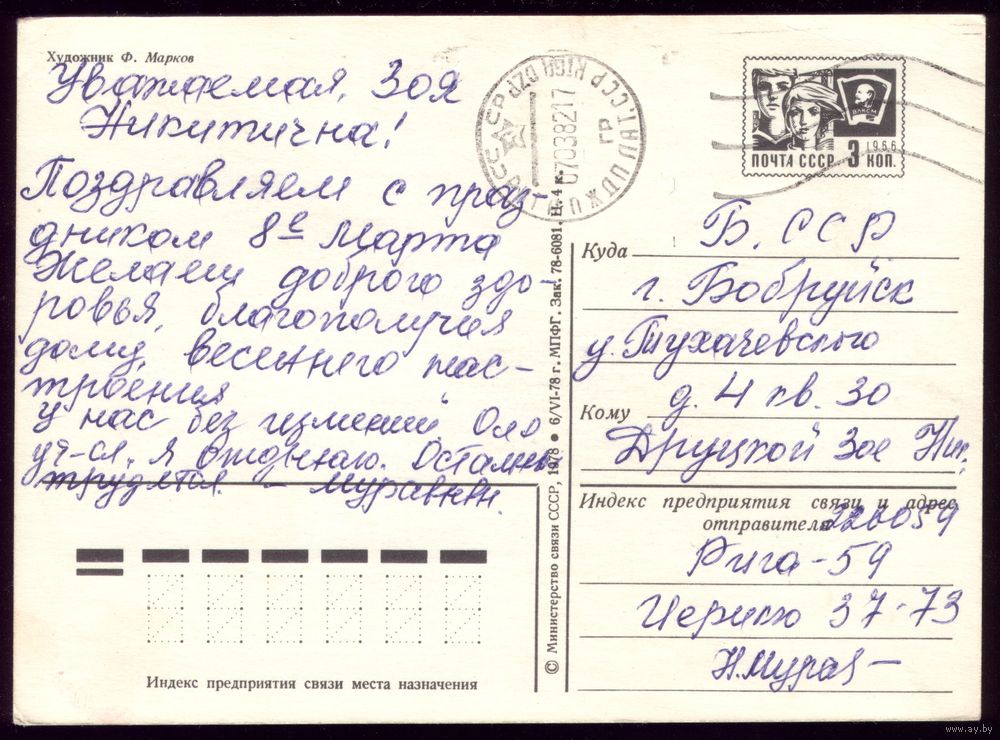 Художник Ф. Марков
Уважаемая, Зоя
Никитична!
Поздравляем с праз-
дником 8е Марта
Желаем доброго здо-
ровья, благополучия
дому, весеннего нас-
троения
У нас без измений Оля
уч-ся. Я отдыхаю. Остальн
трудятся. – Муравьевы.
Индекс предприятия связи места назначения
© Министерство связи СССР, 1978 • 6/VI-78 г. МПФГ. Зак. 78-6081. Ц. 4 к.
070382 17
ПОЧТА СССР 3 КОП.
1966
ВЛКСМ
Куда Б. ССР
г. Бобруйск
у. Тухачевского
д. 4 кв. 30
Кому
Друцкой Зое Ник.
Индекс предприятия связи и адрес
отправителя 226059
Рига-59
37-73
Н. Мурав–
www.ay.by